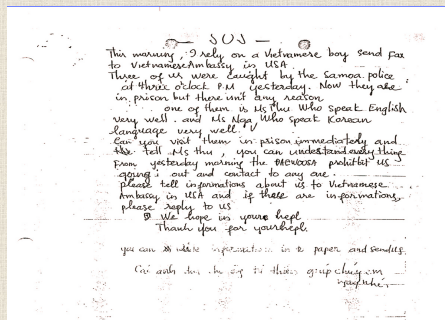 SOS
This morning, I rely on a vietnamese boy send fax
to VietnameseAmbassy in USA.
Three of us were caught by the Samoa police
at three o'clock P.M yesterday. Now they are
in prison but there isn't any reason
one of them is MsThu Who Speak English
very well. and Ms Nga Who speak Korean
language very well.
Can you visit them in prison immediately and
tell Ms thu, you can understand everything
From yesterday morning the DAEWOOSA prohibit us
going out and contact to any one.
please tell informations about us to Vietnamese
Ambassy in USA and if these are informations,
please reply to us
We hope in youre hepl
Thank you for yourhepl.
you can write informations in to paper and sendus